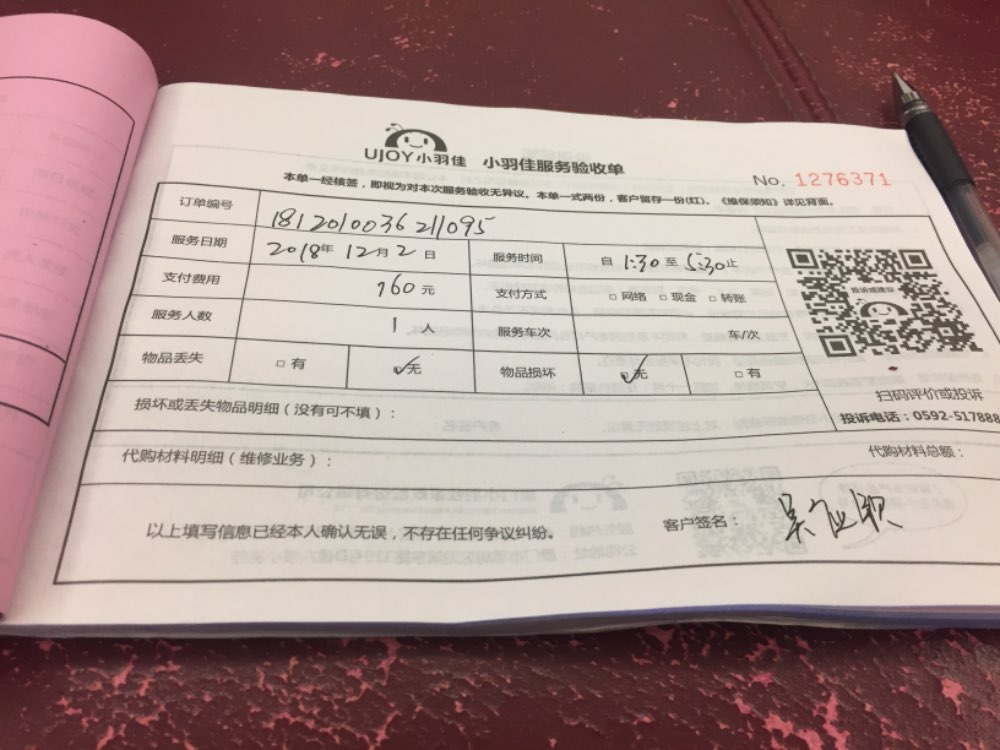 UJOY小羽佳 小羽佳服务验收单
No. 1276371
本单一经核签，即视为对本次服务验收无异议。本单一式两份，客户留存一份(红)。《维保须知》详见背面。
订单编号 1812010036211095
服务日期 2018年12月2日 服务时间 自 1:30 至 5:30止
支付费用 160元 支付方式 □网络 □现金 □转账
服务人数 1人 服务车次 车/次
物品丢失 □有 ✓无 物品损坏 ✓无 □有
投诉或建议
扫码评价或投诉
投诉电话：0592-517888
损坏或丢失物品明细（没有可不填）：
代购材料明细（维修业务）： 代购材料总额：
以上填写信息已经本人确认无误，不存在任何争议纠纷。 客户签名：